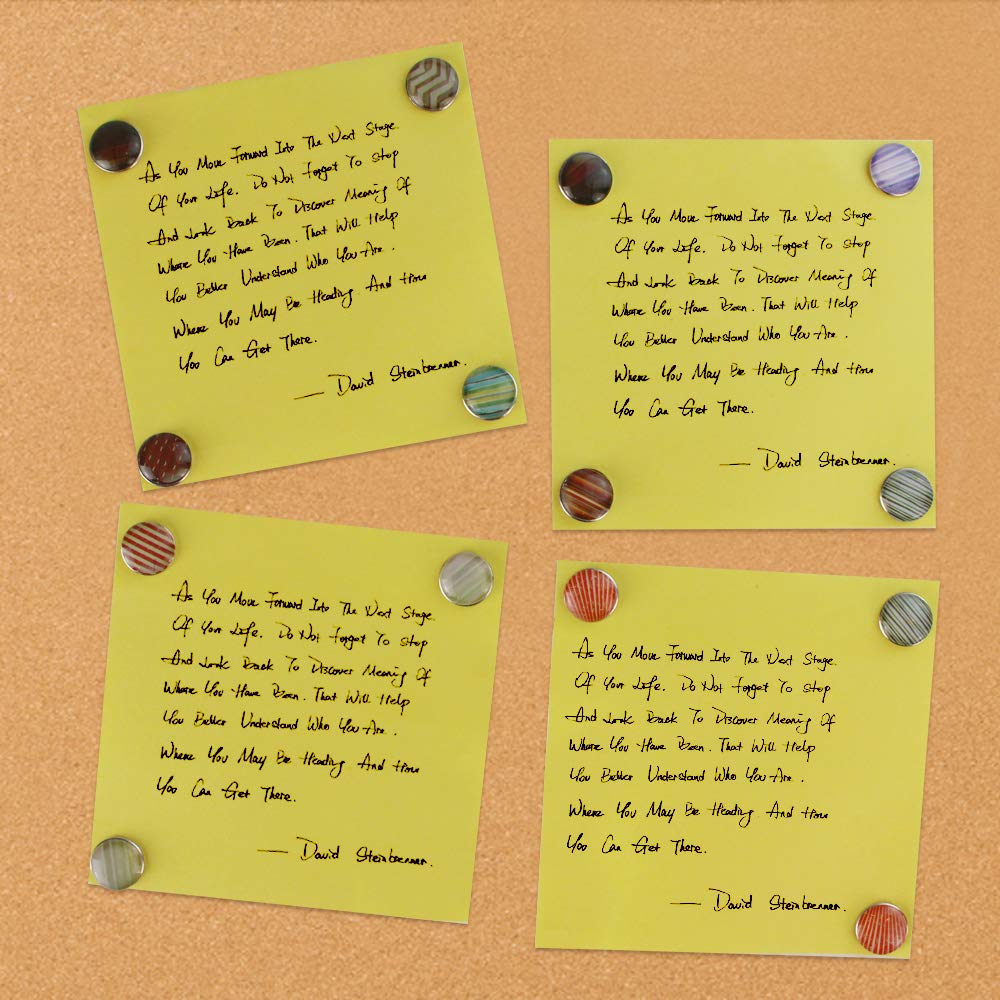 As You Move Forward Into The Next Stage.
Of Your Life. Do Not Forget To Stop
And Look Back To Discover Meaning Of
Where You Have Been. That Will Help
You Better Understand Who You Are.
Where You May Be Heading And How
You Can Get There.
— David Steinbrenner.
As You Move Forward Into The Next Stage.
Of Your Life. Do Not Forget To Stop
And Look Back To Discover Meaning Of
Where You Have Been. That Will Help
You Better Understand Who You Are.
Where You May Be Heading And How
You Can Get There.
— David Steinbrenner.
As You Move Forward Into The Next Stage.
Of Your Life. Do Not Forget To Stop
And Look Back To Discover Meaning Of
Where You Have Been. That Will Help
You Better Understand Who You Are.
Where You May Be Heading And How
You Can Get There.
— David Steinbrenner.
As You Move Forward Into The Next Stage.
Of Your Life. Do Not Forget To Stop
And Look Back To Discover Meaning Of
Where You Have Been. That Will Help
You Better Understand Who You Are.
Where You May Be Heading And How
You Can Get There.
— David Steinbrenner.